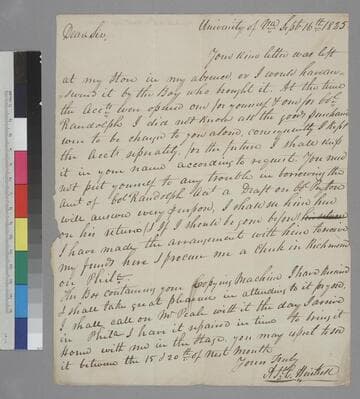 University of Va Sept 16th 1825
Dear Sir,
Your kind letter was left
at my Store in my absence or I would have an-
swered it by the Boy who brought it. At the time
the Accts were opened one for yourself & one for Col.
Randolph I did not know all the goods purchased
were to be charged to you alone, consequently I kept
the Accts seperately. for the future I shall keep
it in your name according to request. You need
not put yourself to any trouble in borrowing the
amt of Col Randolph that a Draft on Col Peyton
will answer every purpose, I shall see him here
on his return & if I should be gone before
I have made the arrangement with him to receive
my funds here & procure me a Check in Richmond
on Phila.
The Box containing your Copying Machine I have received
I shall take great pleasure in attending to it for you.
I shall call on Mr Peale with it the day I arrive
in Phila & have it repaired in time to bring it
Home with me in the Stage. you may expect to see
it between the 15 & 20th of next Month
Yours Truly